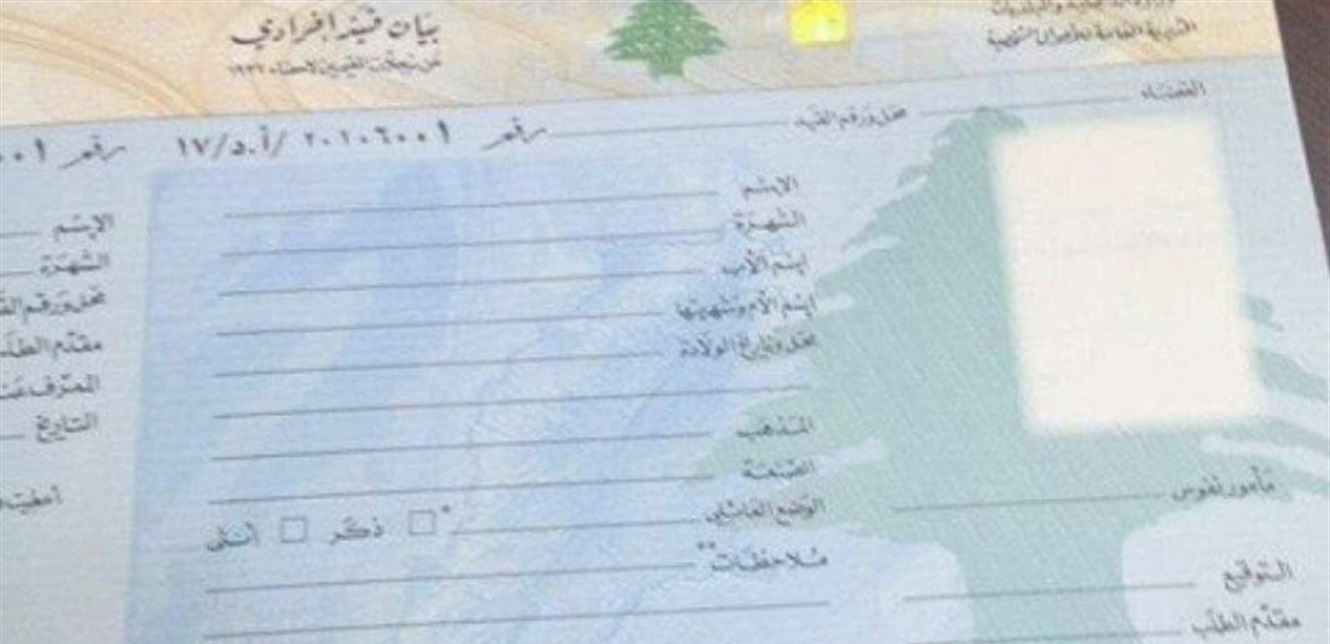 بيان قيد إفرادي
المديرية العامة للأحوال الشخصية
عن سجلات المقيمين لاحصاء ١٩٣٢
القضاء
محل ورقم القيد
رقم ٢٠١٠٦٠٠١ /أ.د/١٧
رقم ٠٠١
الإسم
الشهرة
إسم الأب
إسم الأم وشهرتها
محل وتاريخ الولادة
المذهب
الوضع العائلي
* ذكر أنثى
ملاحظات**
مأمور نفوس
التوقيع
مقدم الطلب
الإسم
الشهرة
محل ورقم
مقدم
المعرف
التاريخ